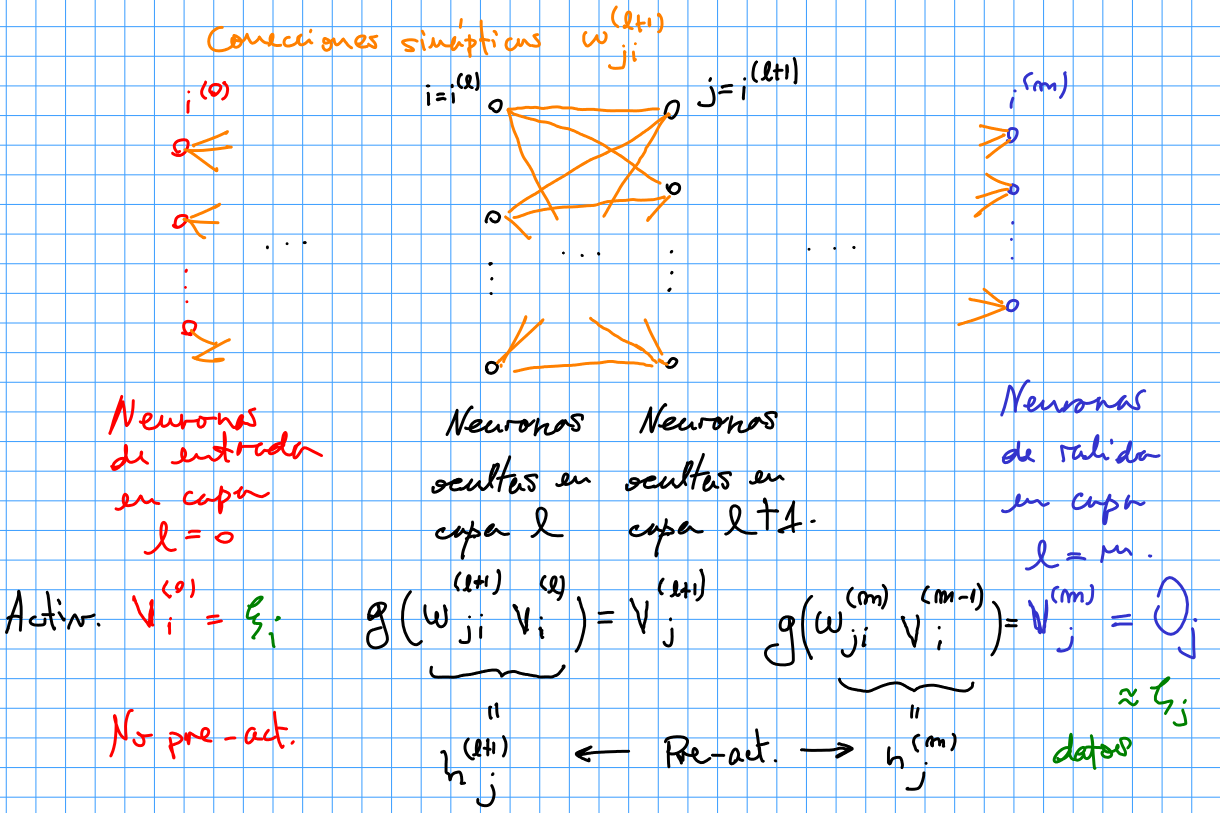 Conecciones sinápticas w_{ji}^{(l+1)}
i^{(0)}
i=i^{(l)}
j=i^{(l+1)}
i^{(m)}
...
...
...
Neuronas
de entrada
en capa
l = 0
Neuronas
ocultas en
capa l
Neuronas
ocultas en
capa l+1.
Neuronas
de salida
en capa
l = m.
Activ.
V_i^{(0)} = ξ_i
g(w_{ji}^{(l+1)} V_i^{(l)}) = V_j^{(l+1)}
g(w_{ji}^{(m)} V_i^{(m-1)}) = V_j^{(m)} = O_j
≈ ζ_j
datos
No pre-act.
=
h_j^{(l+1)} ← Pre-act. → h_j^{(m)}
=